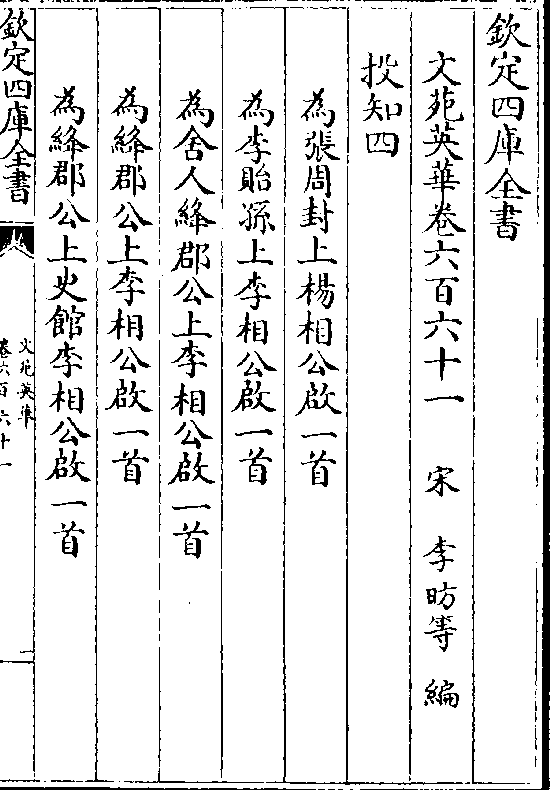 欽定四庫全書
文苑英華卷六百六十一 宋 李昉等 編
投知四
為張周封上楊相公啟一首
為李貽孫上李相公啟一首
為舍人絳郡公上李相公啟一首
為絳郡公上李相公啟一首
為絳郡公上史館李相公啟一首
欽定四庫全書
文苑英華
卷六百六十一
一